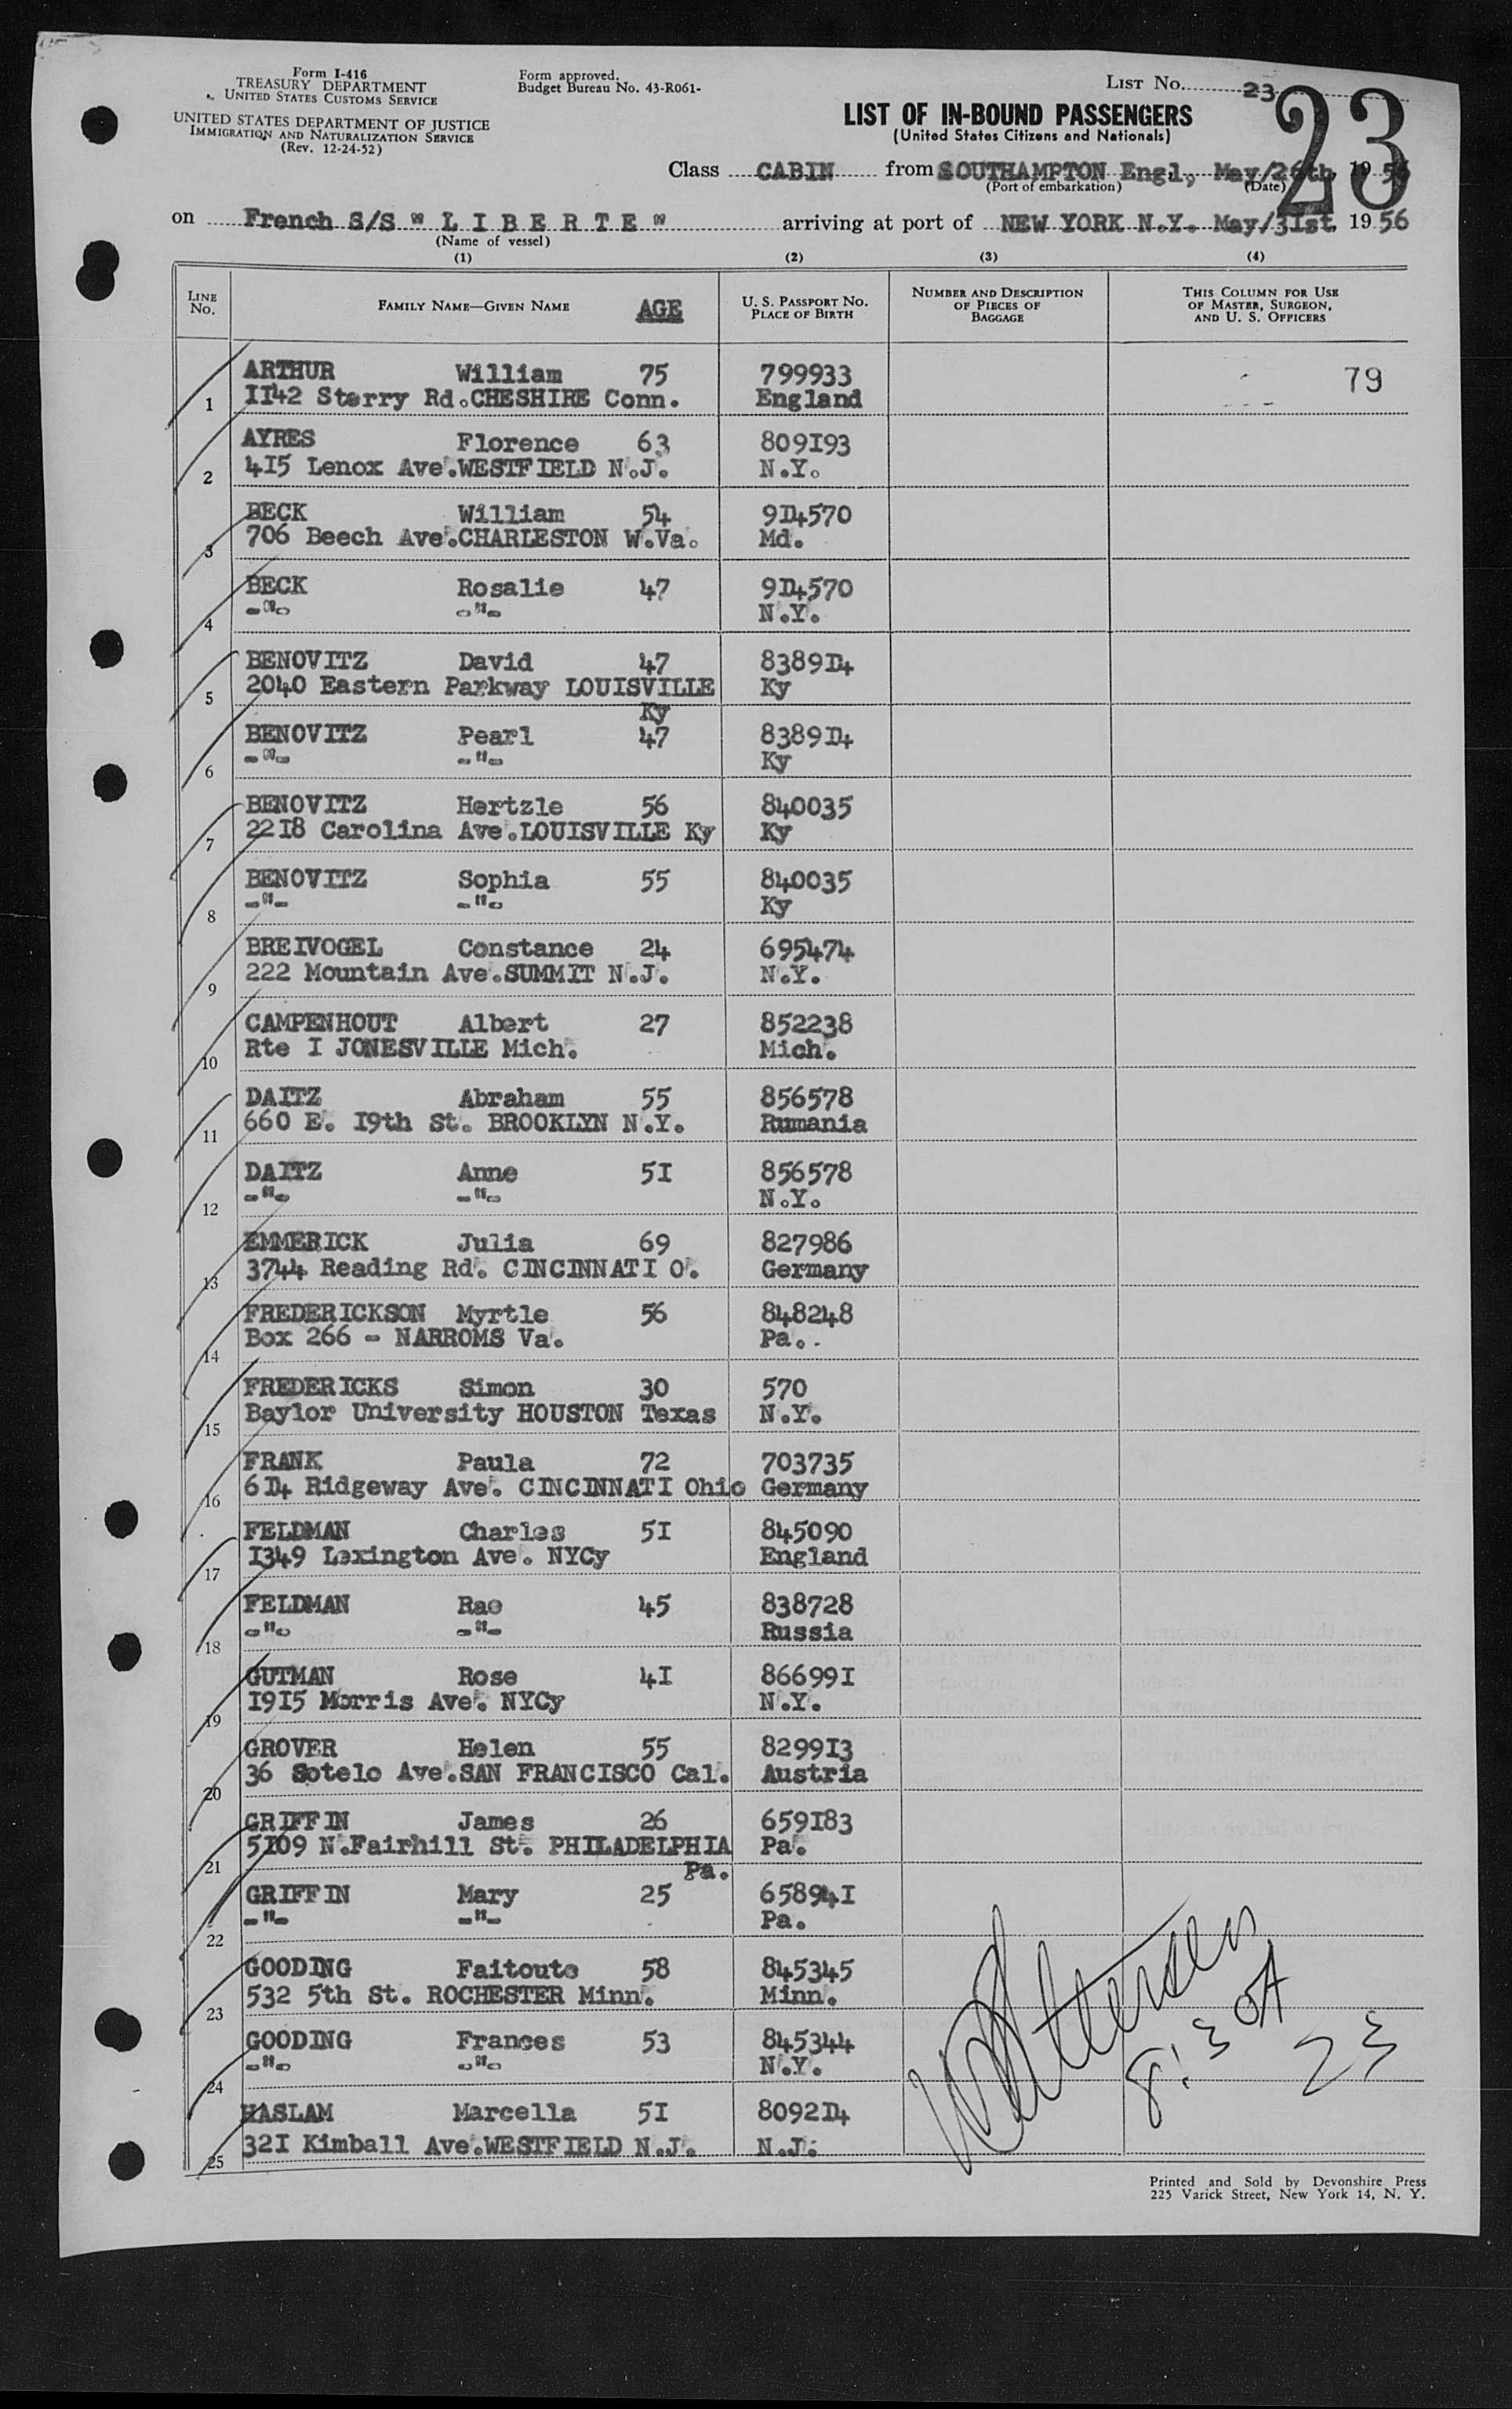 Form I-416
TREASURY DEPARTMENT
UNITED STATES CUSTOMS SERVICE
UNITED STATES DEPARTMENT OF JUSTICE
IMMIGRATION AND NATURALIZATION SERVICE
(Rev. 12-24-52)
Form approved.
Budget Bureau No. 43-R061-
LIST No. 23
23
LIST OF IN-BOUND PASSENGERS
(United States Citizens and Nationals)
Class CABIN from SOUTHAMPTON Engl, May/26th, 1956
(Port of embarkation) (Date)
on French S/S " L I B E R T E " arriving at port of NEW YORK N.Y. May/3Ist, 1956
(Name of vessel)
(1) (2) (3) (4)
LINE No. FAMILY NAME—GIVEN NAME AGE U. S. PASSPORT No. PLACE OF BIRTH NUMBER AND DESCRIPTION OF PIECES OF BAGGAGE THIS COLUMN FOR USE OF MASTER, SURGEON, AND U. S. OFFICERS
ARTHUR William 75 799933 79
1 II42 Starry Rd.CHESHIRE Conn. England
AYRES Florence 63 809I93
2 4I5 Lenox Ave.WESTFIELD N.J. N.Y.
BECK William 54 9I4570
3 706 Beech Ave.CHARLESTON W.Va. Md.
BECK Rosalie 47 9I4570
4 -"- -"- N.Y.
BENOVITZ David 47 8389I4
5 2040 Eastern Parkway LOUISVILLE Ky Ky
BENOVITZ Pearl 47 8389I4
6 -"- -"- Ky
BENOVITZ Hertzle 56 840035
7 22I8 Carolina Ave.LOUISVILLE Ky Ky
BENOVITZ Sophia 55 840035
8 -"- -"- Ky
BREIVOGEL Constance 24 695474
9 222 Mountain Ave.SUMMIT N.J. N.Y.
CAMPENHOUT Albert 27 852238
10 Rte I JONESVILLE Mich. Mich.
DAITZ Abraham 55 856578
11 660 E. I9th St. BROOKLYN N.Y. Rumania
DAITZ Anne 5I 856578
12 -"- -"- N.Y.
EMMERICK Julia 69 827986
13 3744 Reading Rd. CINCINNATI O. Germany
FREDERICKSON Myrtle 56 848248
14 Box 266 - NARROMS Va. Pa.
FREDERICKS Simon 30 570
15 Baylor University HOUSTON Texas N.Y.
FRANK Paula 72 703735
16 6I4 Ridgeway Ave. CINCINNATI Ohio Germany
FELDMAN Charles 5I 845090
17 I349 Lexington Ave. NYCy England
FELDMAN Rae 45 838728
18 -"- -"- Russia
GUTMAN Rose 4I 86699I
19 I9I5 Morris Ave. NYCy N.Y.
GROVER Helen 55 8299I3
20 36 Sotelo Ave.SAN FRANCISCO Cal. Austria
GRIFFIN James 26 659I83
21 5I09 N.Fairhill St. PHILADELPHIA Pa. Pa.
GRIFFIN Mary 25 65894I
22 -"- -"- Pa.
GOODING Faitoute 58 845345
23 532 5th St. ROCHESTER Minn. Minn.
GOODING Frances 53 845344
24 -"- -"- N.Y.
HASLAM Marcella 5I 8092I4
25 32I Kimball Ave.WESTFIELD N.J. N.J.
23
Printed and Sold by Devonshire Press
225 Varick Street, New York 14, N. Y.